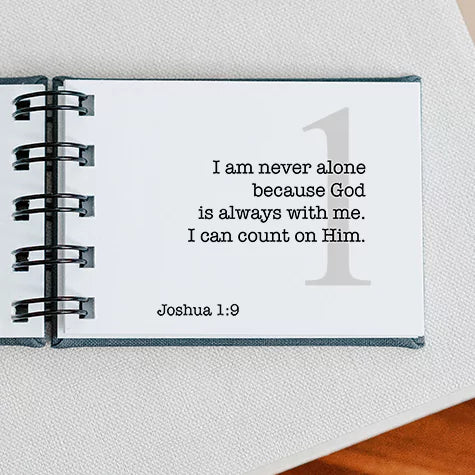 1
I am never alone
because God
is always with me.
I can count on Him.
Joshua 1:9